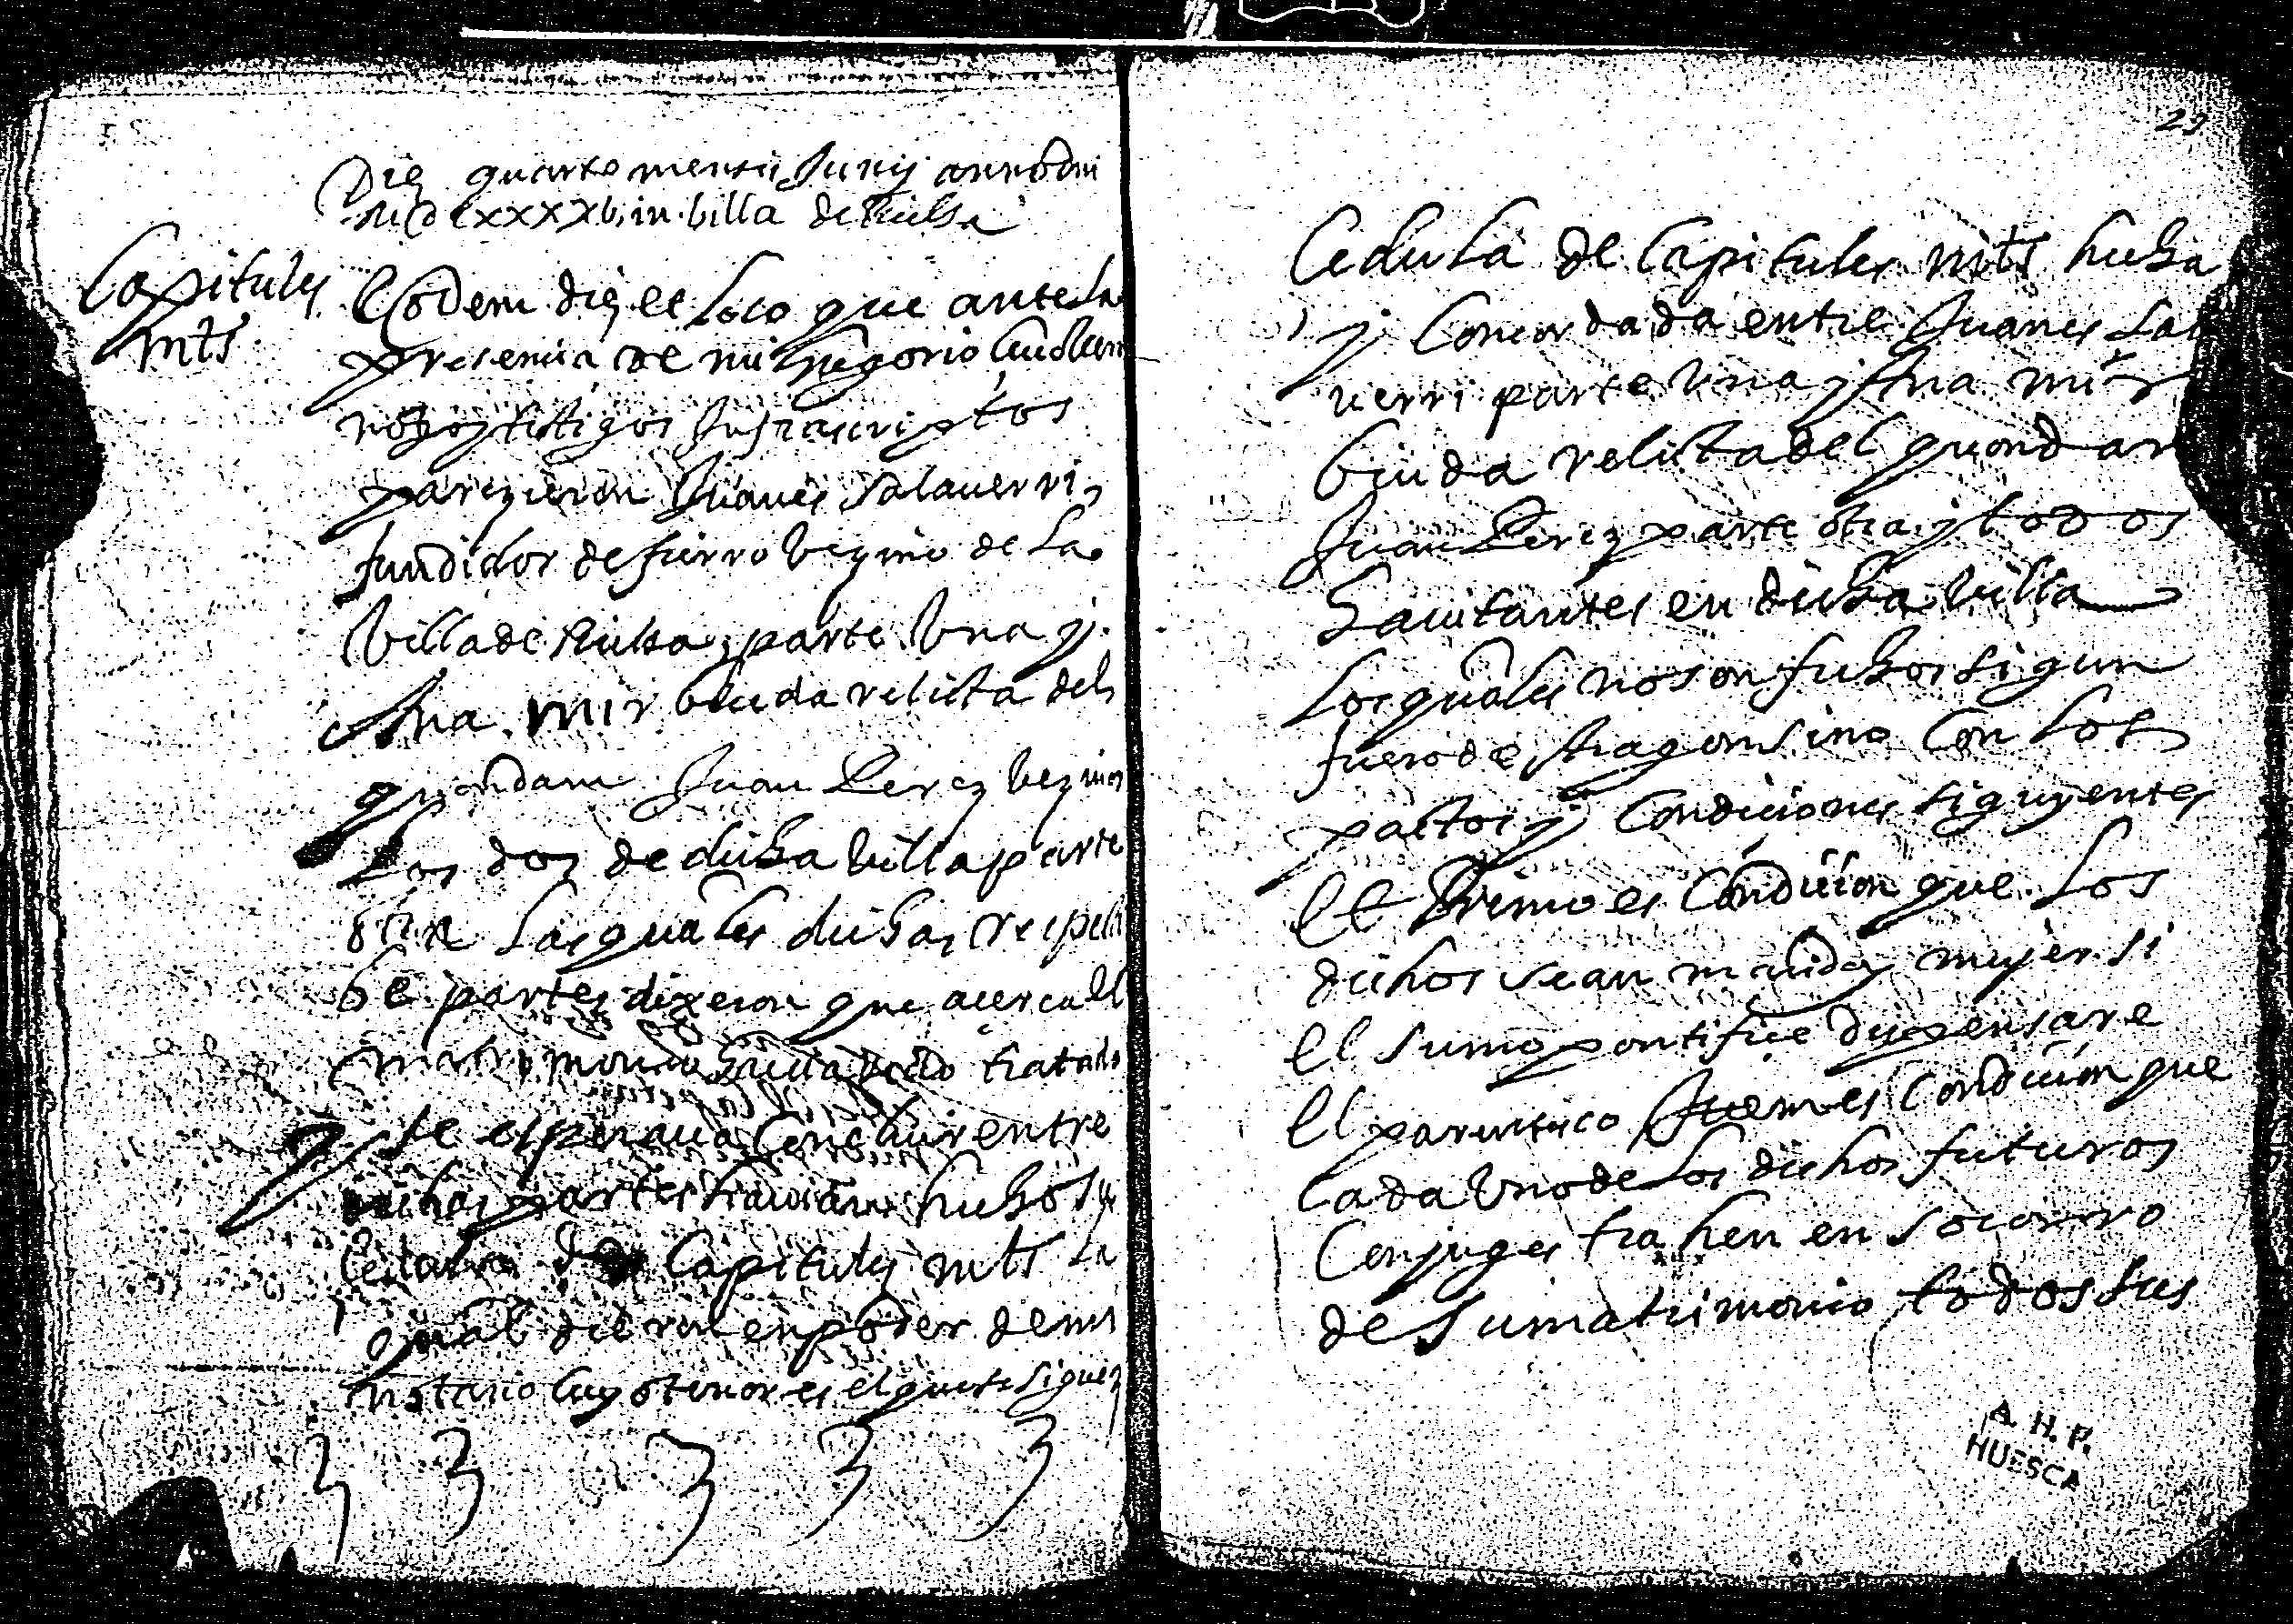 Die quarto mensis Junij anno dni
MCDLXXXXVI in billa de Bielsa
Capitules
mts
Eodem die et loco que ante la
presencia de mi Gregorio
noto y testigos Infrascriptos
parezieron Juanes Salauerri
fundidor de fierro bezino de la
billa de Bielsa parte Una y
Ana mir biuda relicta del
quondam Juan Perez bezinos
los dos de dicha billa parte
otra las quales dichas respecti
be partes dixeron que acerca el
matrimonio tratado
y se esperaua concluir entre
dichas partes hauian hecho
Cedula de Capitules mts la
qual dieron en poder de mi
notario cuyo tenor es el que se sigue
29
Cedula de Capitules mts hecha
y Concordada entre Juanes Sala
uerri parte Una y Ana mir
biuda relicta del quondam
Juan Perez parte otra y todos
hauitantes en dicha billa
los quales no son fechos sigun
fuero de Aragon sino con los
pactos y Condiciones siguyentes
Et Primo es Condicion que los
dichos sean marido y mujer si
el sumo pontifice dispensare
el parentesco Item es Condicion que
Cada Uno de los dichos futuros
Conjuges trahen en socorro
de su matrimonio todos sus
A. H. P.
HUESCA